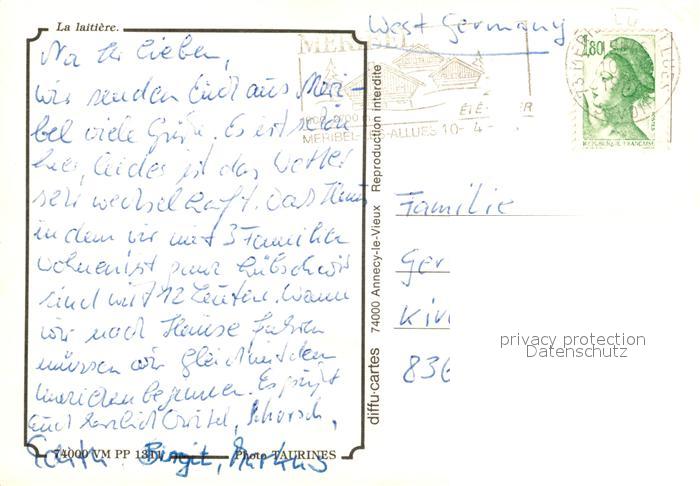 La laitière.
Na Ihr Lieben,
wir senden Euch aus Meri-
bel viele Grüße. Es ist schön
hier, leider ist das Wetter
sehr wechselhaft. Das Haus
in dem wir mit 3 Familien
wohnen ist ganz hübsch wir
sind mit 12 Leuten. Wenn
wir nach Hause fahren
müssen wir gleich mit dem
beginnen. Es grüßt
Euch herzlich Christel, Schorsch,
Birgit, Markus
74000 VM PP 13
Photo TAURINES
diffu-cartes 74000 Annecy-le-Vieux Reproduction interdite
West Germany
MERIBEL
ÉTÉ
MERIBEL-LES-ALLUES 10-4
1,80
POSTES
REPUBLIQUE FRANÇAISE
Familie
Ger
Kir
836
privacy protection
Datenschutz